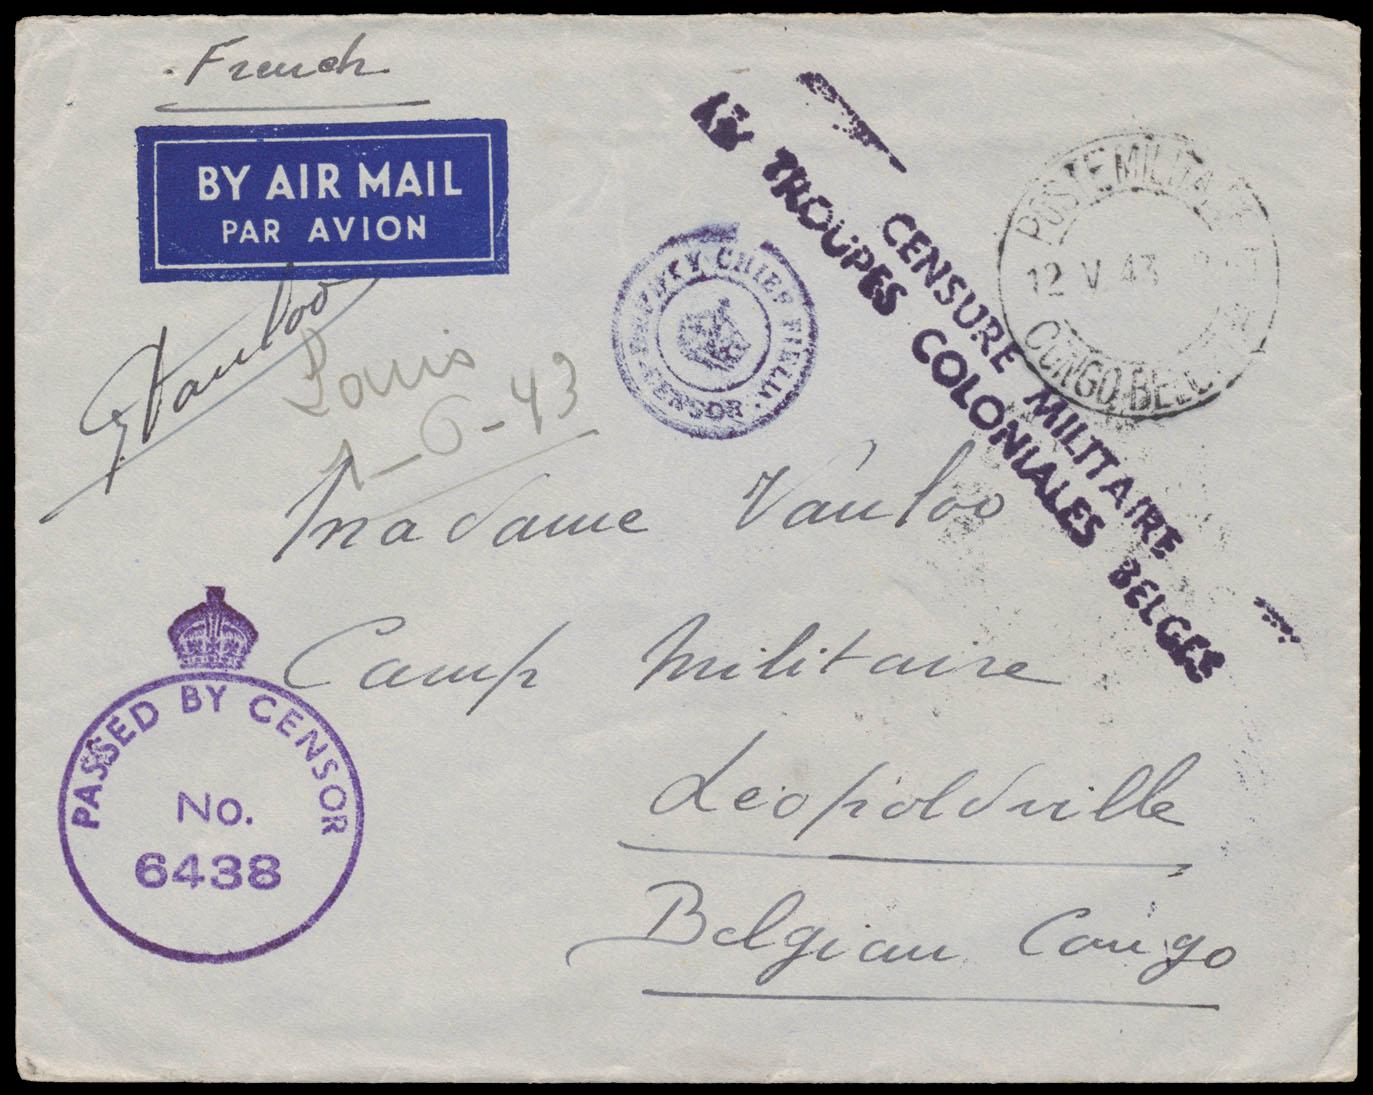 French
BY AIR MAIL
PAR AVION
Vanloo
Louis
1-6-43
DEPUTY CHIEF FIELD
CENSOR
CENSURE MILITAIRE
TROUPES COLONIALES BELGES
POSTE MILITAIRE
12 V. 43
CONGO BELGE
Madame Vanloo
Camp Militaire
Leopoldville
Belgian Congo
PASSED BY CENSOR
No.
6438